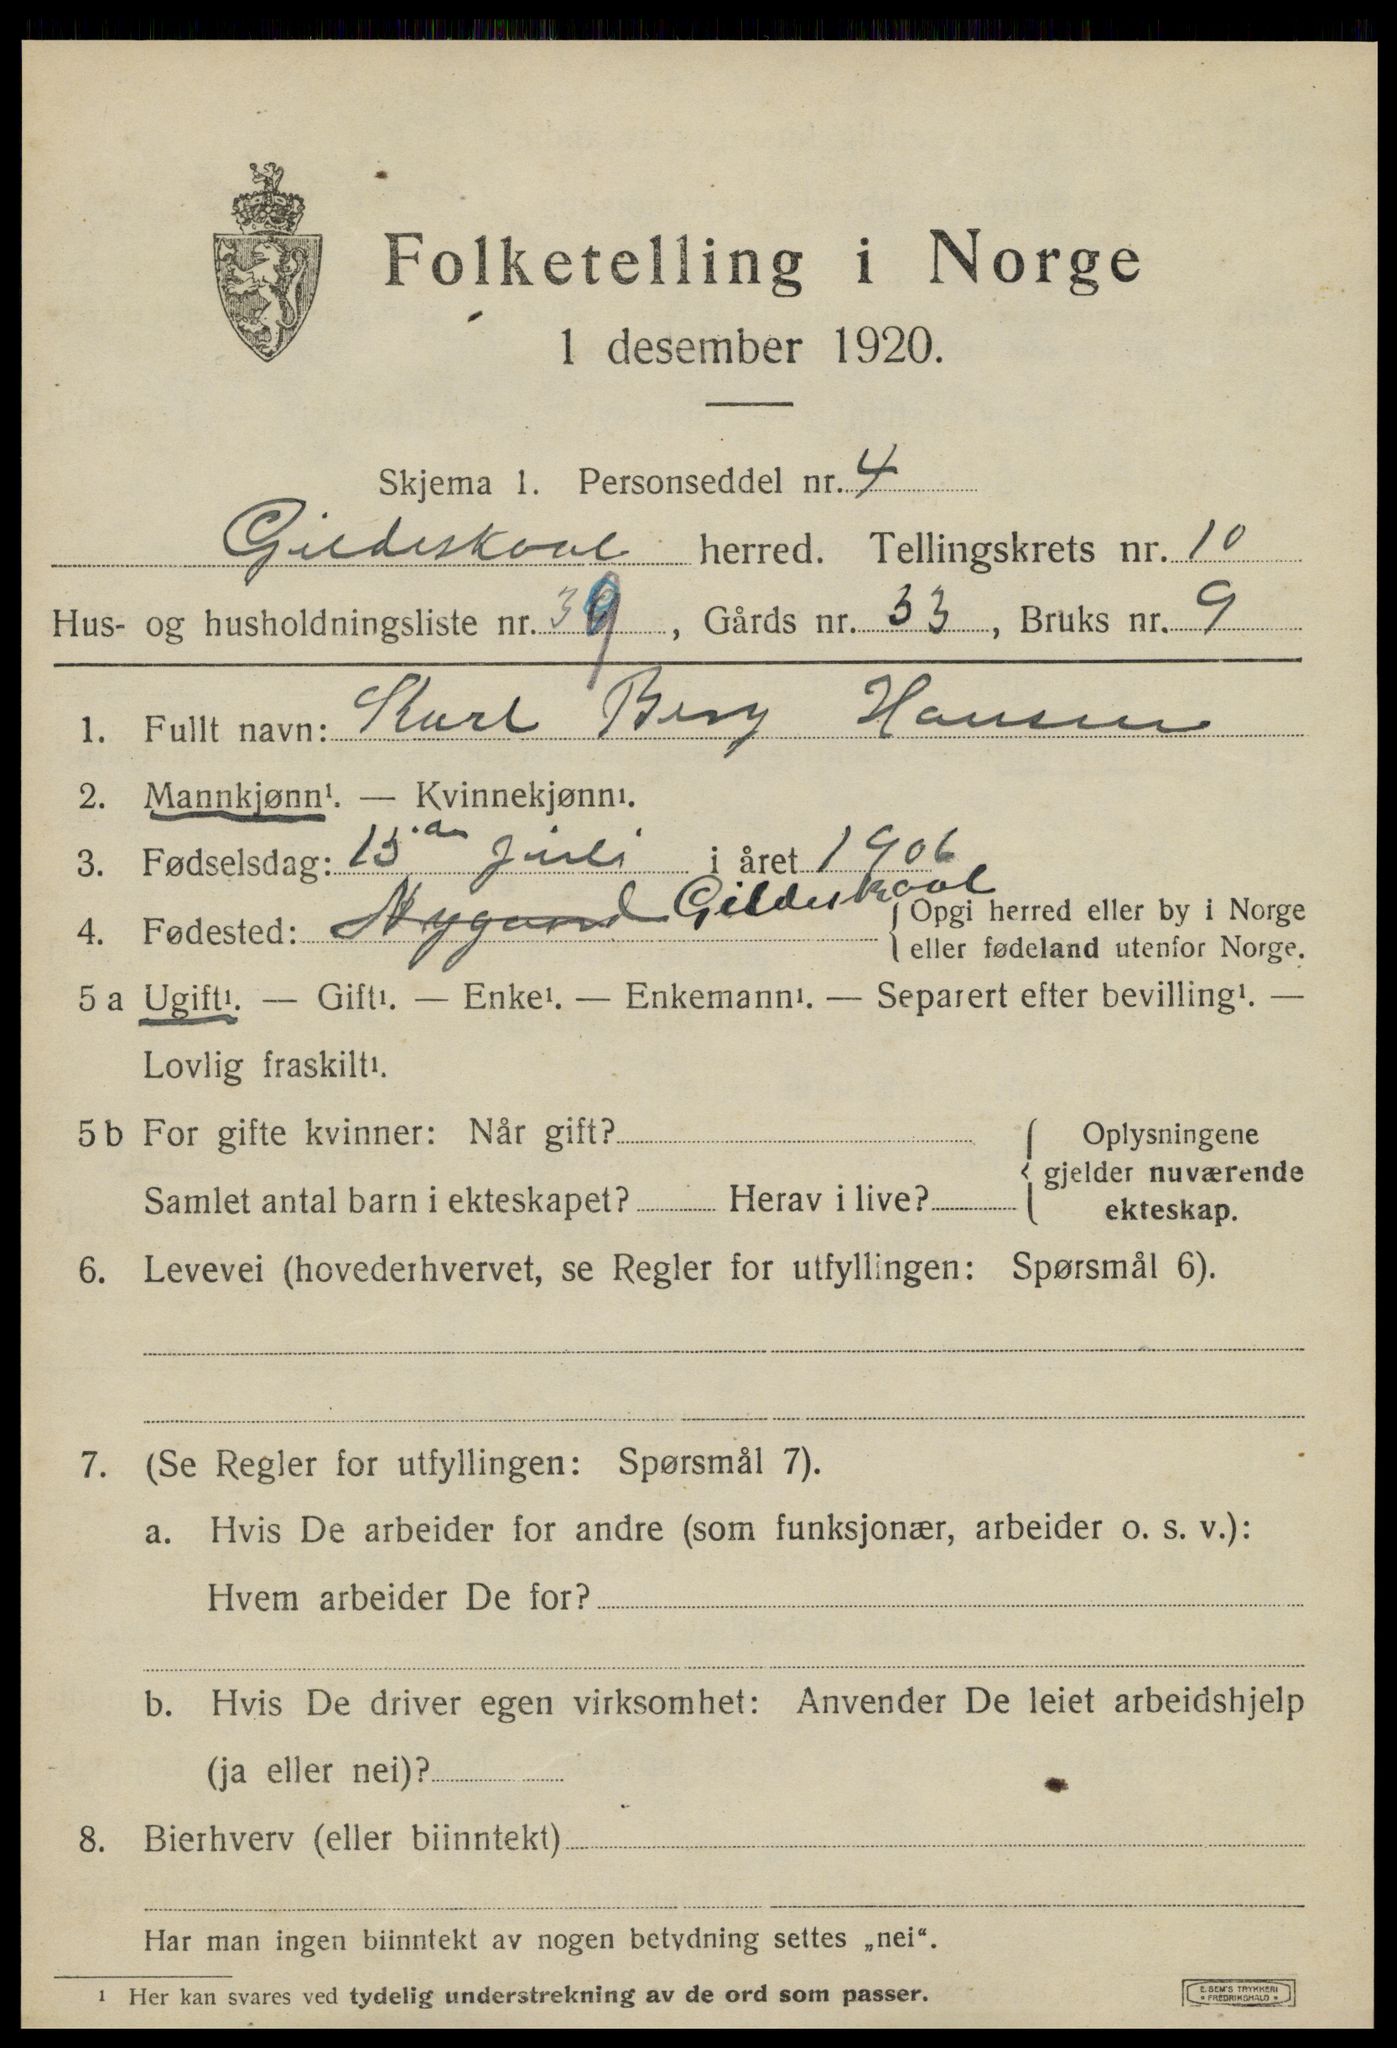 Folketelling i Norge
1 desember 1920.
Skjema 1. Personseddel nr. 4
Gildeskaal herred. Tellingskrets nr. 10
Hus- og husholdningsliste nr. 39, Gårds nr. 33, Bruks nr. 9
1. Fullt navn: Karl Berg Hansen
2. Mannkjønn¹. — Kvinnekjønn¹.
3. Fødselsdag: 15 juli i året 1906
4. Fødested: Nygaard Gildeskaal {Opgi herred eller by i Norge
eller fødeland utenfor Norge.
5 a Ugift¹. — Gift¹. — Enke¹. — Enkemann¹. — Separert efter bevilling¹. —
Lovlig fraskilt¹.
5 b For gifte kvinner: Når gift? { Oplysningene
gjelder nuværende
Samlet antal barn i ekteskapet? Herav i live? ekteskap.
6. Levevei (hovederhvervet, se Regler for utfyllingen: Spørsmål 6).
7. (Se Regler for utfyllingen: Spørsmål 7).
a. Hvis De arbeider for andre (som funksjonær, arbeider o. s. v.):
Hvem arbeider De for?
b. Hvis De driver egen virksomhet: Anvender De leiet arbeidshjelp
(ja eller nei)?
8. Bierhverv (eller biinntekt)
Har man ingen biinntekt av nogen betydning settes „nei“.
¹ Her kan svares ved tydelig understrekning av de ord som passer.
E. SEM'S TRYKKERI
* FREDRIKSHALD *